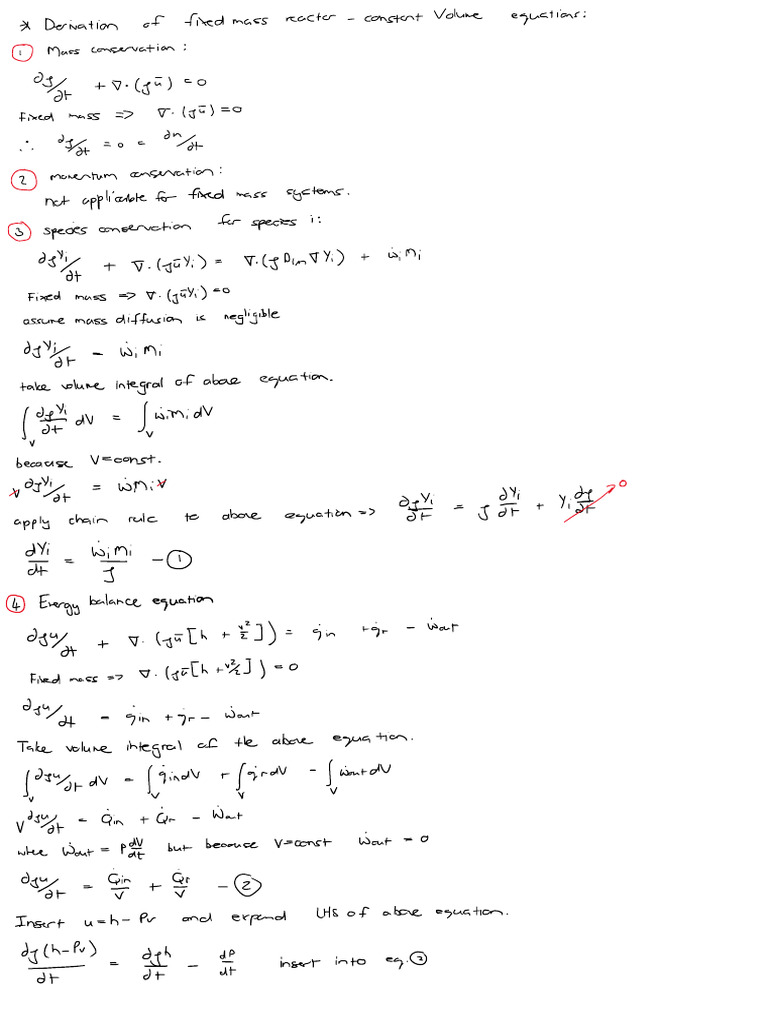 * Derivation of fixed mass reactor - constant Volume equations:
① Mass conservation:
∂ρ/∂t + ∇·(ρū) = 0
Fixed mass => ∇·(ρū) = 0
∴ ∂ρ/∂t = 0 = ∂m/∂t
② momentum conservation:
not applicable for fixed mass systems.
③ species conservation for species i:
∂ρYi/∂t + ∇·(ρūYi) = ∇·(ρDim∇Yi) + ẇiMi
Fixed mass => ∇·(ρūYi) = 0
assume mass diffusion is negligible
∂ρYi/∂t = ẇiMi
take volume integral of above equation.
∫V ∂ρYi/∂t dV = ∫V ẇiMi dV
because V=const.
V ∂ρYi/∂t = ẇiMi V
apply chain rule to above equation => ∂ρYi/∂t = ρ ∂Yi/∂t + Yi ∂ρ/∂t → 0
dYi/dt = ẇiMi/ρ - ①
④ Energy balance equation
∂ρu/∂t + ∇·(ρū[h + v²/2]) = q̇in + q̇r - ẇout
Fixed mass => ∇·(ρū[h + v²/2]) = 0
∂ρu/∂t = q̇in + q̇r - ẇout
Take volume integral of the above equation.
∫V ∂ρu/∂t dV = ∫V q̇in dV + ∫V q̇r dV - ∫V ẇout dV
V ∂ρu/∂t = Q̇in + Q̇r - Ẇout
where Ẇout = P dV/dt but because V=const Ẇout = 0
∂ρu/∂t = Q̇in/V + Q̇r/V - ②
Insert u = h - Pv and expand LHS of above equation.
∂ρ(h-Pv)/∂t = ∂ρh/∂t - dP/dt insert into eq. ②